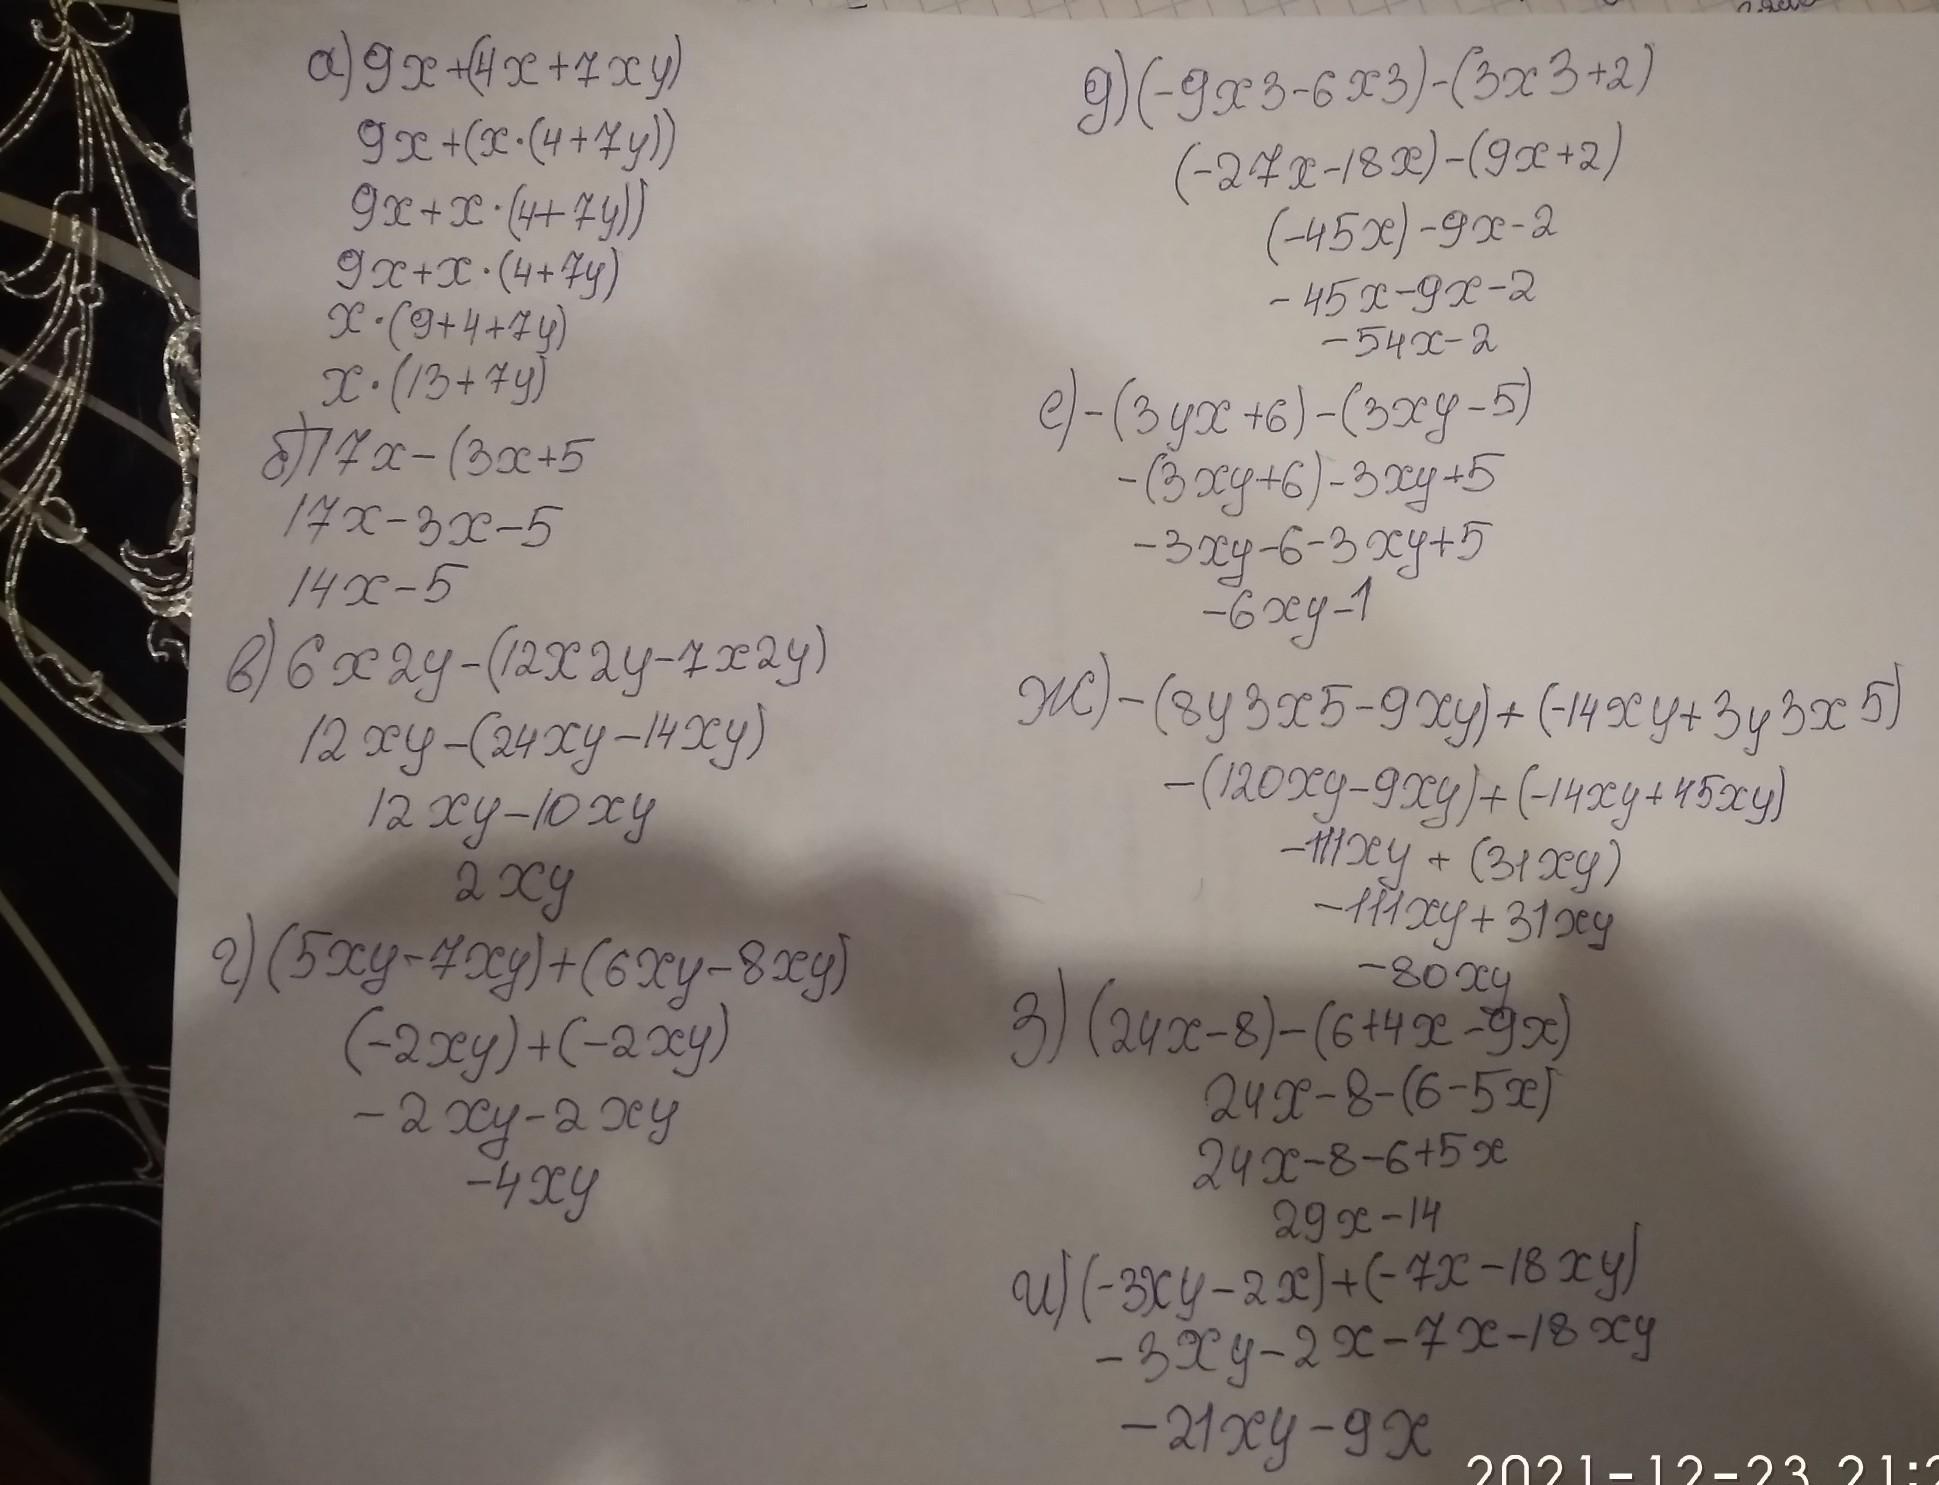 а) 9x+(4x+7xy)
9x+(x·(4+7y))
9x+x·(4+7y))
9x+x·(4+7y)
x·(9+4+7y)
x·(13+7y)
б) 17x-(3x+5
17x-3x-5
14x-5
в) 6x2y-(12x2y-7x2y)
12xy-(24xy-14xy)
12xy-10xy
2xy
г) (5xy-7xy)+(6xy-8xy)
(-2xy)+(-2xy)
-2xy-2xy
-4xy
д) (-9x3-6x3)-(3x3+2)
(-27x-18x)-(9x+2)
(-45x)-9x-2
-45x-9x-2
-54x-2
е) -(3yx+6)-(3xy-5)
-(3xy+6)-3xy+5
-3xy-6-3xy+5
-6xy-1
ж) -(8y3x5-9xy)+(-14xy+3y3x5)
-(120xy-9xy)+(-14xy+45xy)
-111xy+(31xy)
-111xy+31xy
-80xy
з) (24x-8)-(6+4x-9x)
24x-8-(6-5x)
24x-8-6+5x
29x-14
и) (-3xy-2x)+(-7x-18xy)
-3xy-2x-7x-18xy
-21xy-9x
2021-12-23 21:2